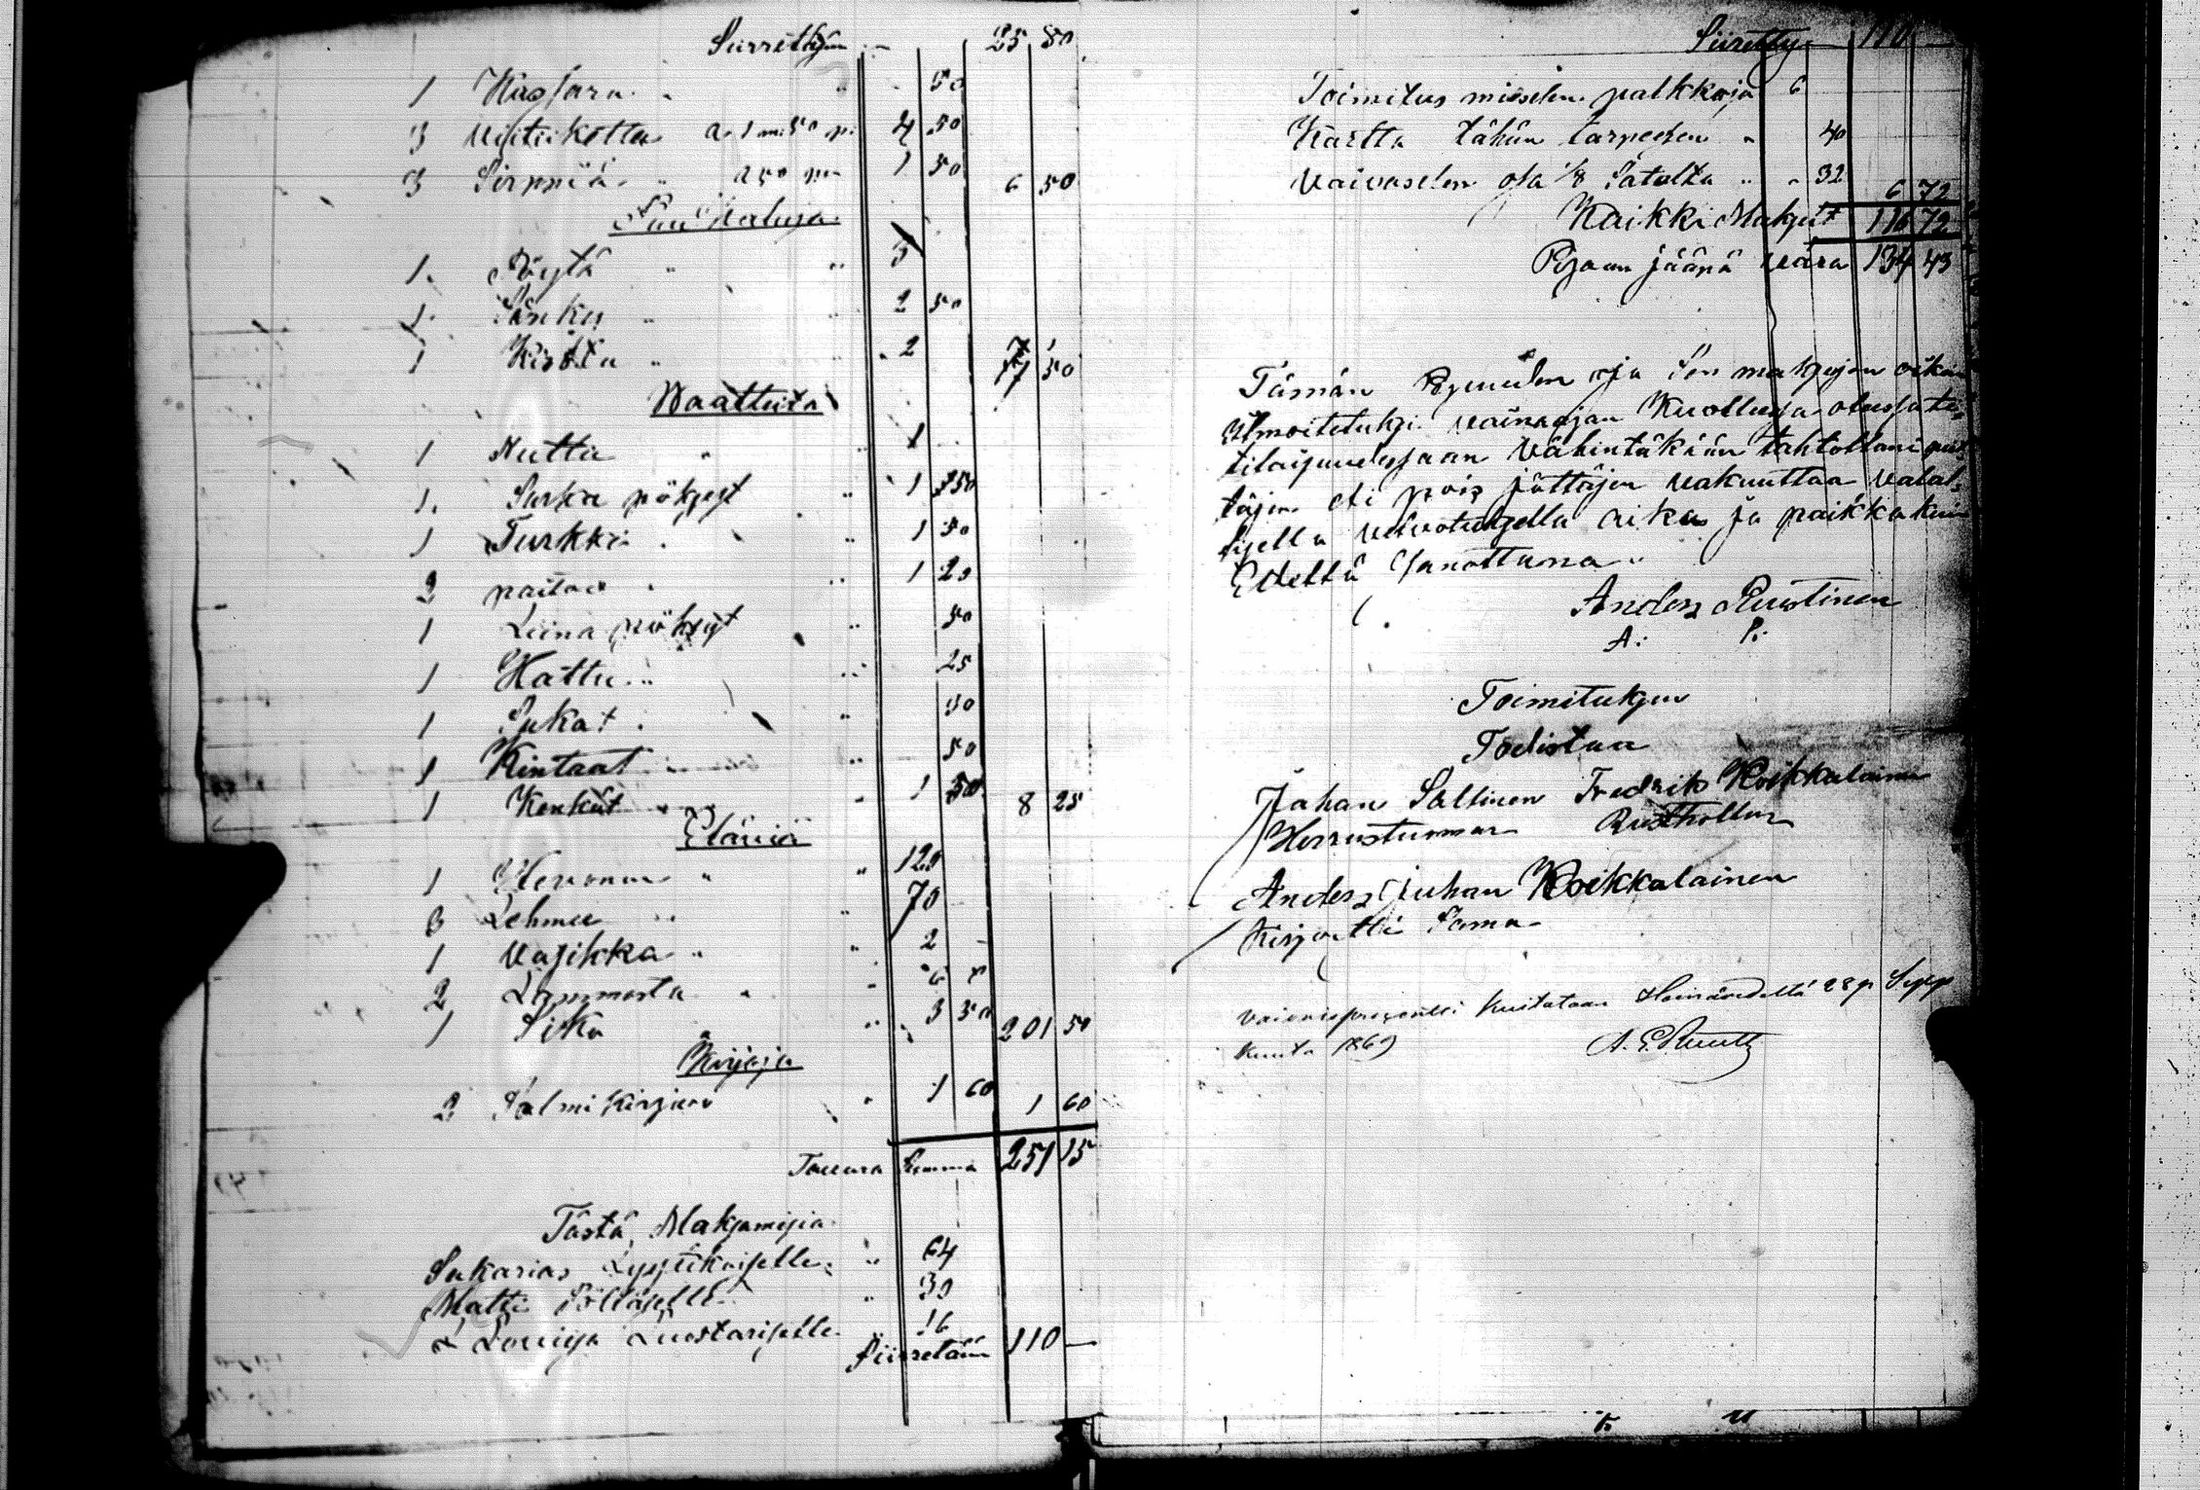 Siirrettyn 25 80
1 Haglara " 50
3 Viitikotta a 1 m: 50 p: 4 50
3 Sirppiä " a 50 p: 1 50 6 50
Puu Kaluja
1. Pöytä " " 3
1. Sänky " " 2 50
1 Kirstu " " 2 7 50
Waatteita
1 Nuttu " 1
1. Sarka pöksyt " 1 50
1 Turkki " 1 50
2 paitaa " 1 20
1 Liina pöksyt " 50
1 Hattu " " 25
1 Sukat " 30
1 Kintaat " 50
1 Kenkät " " 1 50 8 25
Eläviä
1 Hevonen " " 120
3 Lehmee " " 70
1 Vasikka " " 2 -
2 Lammasta " " 6
1 Sika " 3 50 201 50
Kirjoja
2 Salmikirjaa " 1 60 1 60
Tavara Summa 251 15
Tästä Maksamisia
Sakarias Lyytikäiselle " 64
Matti Pölläselle " 30
L Lovisa Luostariselle 16
Siirretään 110 —
Siiretty 110 —
Toimitus miesten palkkoja 6
Kartta tähän tarpeesen " 40
Vaivasten osa 1/8 Satalta " " 32 6 72
Kaikki Maksut 116 72
Pesään jääpä vara 134 43
Tämän Pesän ja sen maksujen oikein
ilmoitetuksi vainaajan Kuollessa olessa
tilaisuudessaan vähintäkään tahtollani
täjen eli pois jättäjen vakuuttaa valal
lisella velvotuksella aika ja paikka kuin
Edellä Sanottuna "
Anders Rustinen
A: P:
Toimituksen
Todistaa
Johan Sallinen Fredrik Koikkalainen
Herrastuomar Rusthollar
Anders Juhan Koikkalainen
Kirjoitti Sama
Vaivaisprosentti kuitataan Heinävedellä 28 p Sypp
kuuta 1869 A. E.